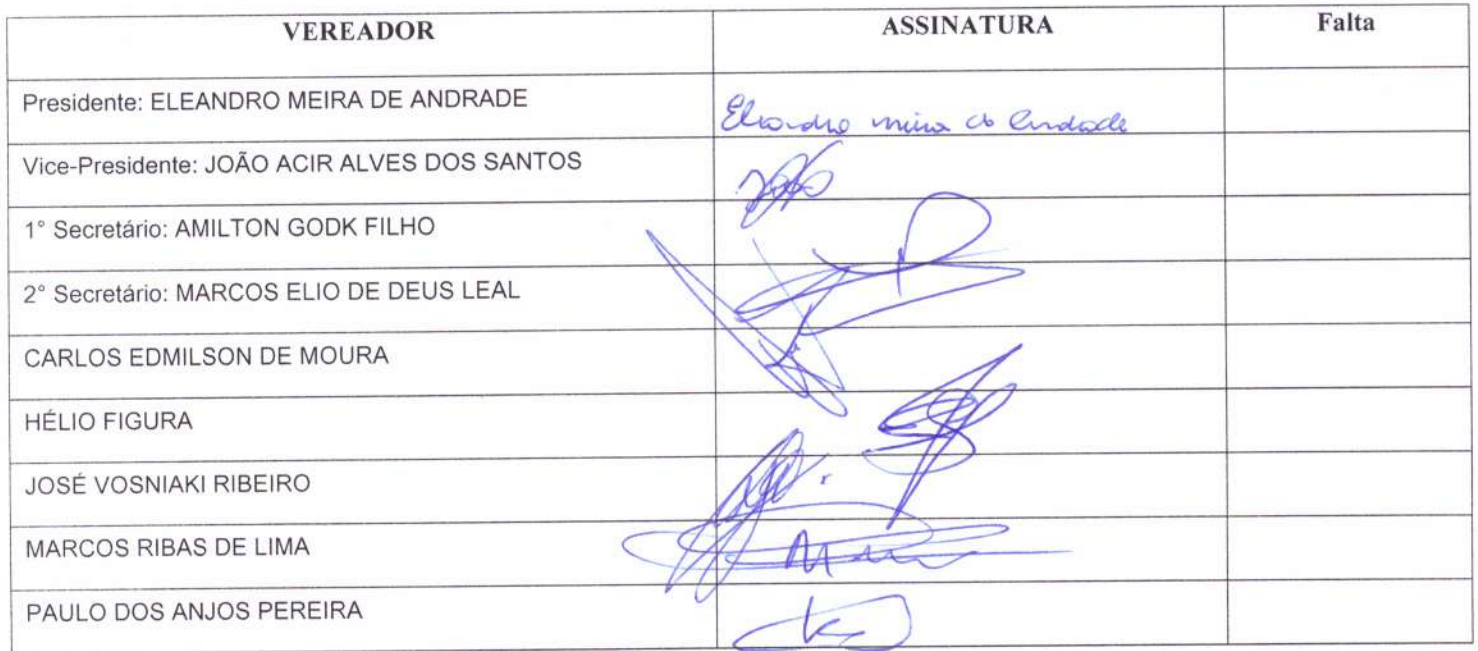 VEREADOR ASSINATURA Falta
Presidente: ELEANDRO MEIRA DE ANDRADE Eleandro meira de Andrade
Vice-Presidente: JOÃO ACIR ALVES DOS SANTOS
1° Secretário: AMILTON GODK FILHO
2° Secretário: MARCOS ELIO DE DEUS LEAL
CARLOS EDMILSON DE MOURA
HÉLIO FIGURA
JOSÉ VOSNIAKI RIBEIRO
MARCOS RIBAS DE LIMA
PAULO DOS ANJOS PEREIRA